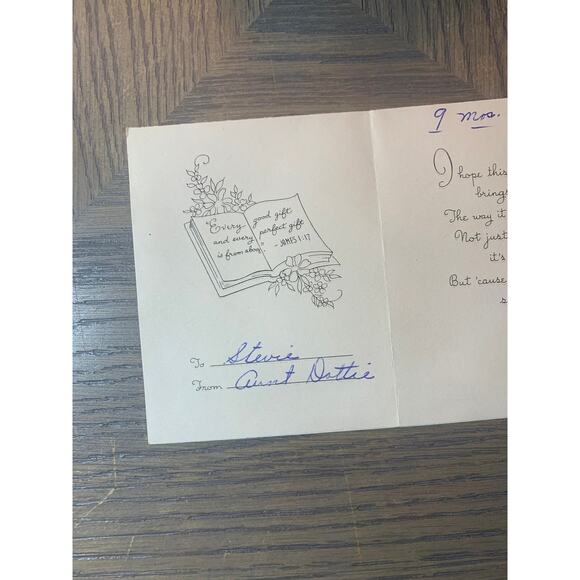 "Every good gift
and every perfect gift
is from above."
- JAMES 1:17
To Stevie
From Aunt Dottie
9 Mos.
I hope this
brings
The way it
Not just
it's
But 'cause
s